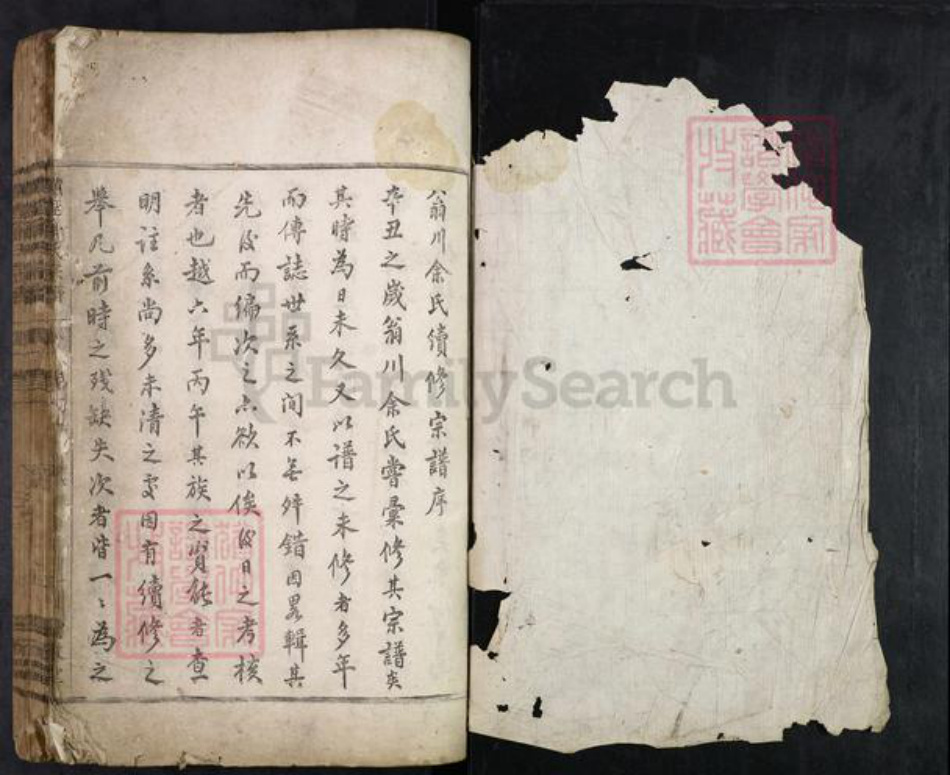 翁川余氏續修宗譜序
辛丑之歲翁川余氏嘗彙修其宗譜矣
其時為日未久又以譜之未修者多年
而傳誌世系之间不无舛錯因畧輯其
先後而徧次之六欲以俟後日之考核
者也越六年丙午其族之賢能者查
明註系尚多未清之處因有續修之
舉凡前時之残缺失次者皆一〻為之
FamilySearch
譜學會
特藏